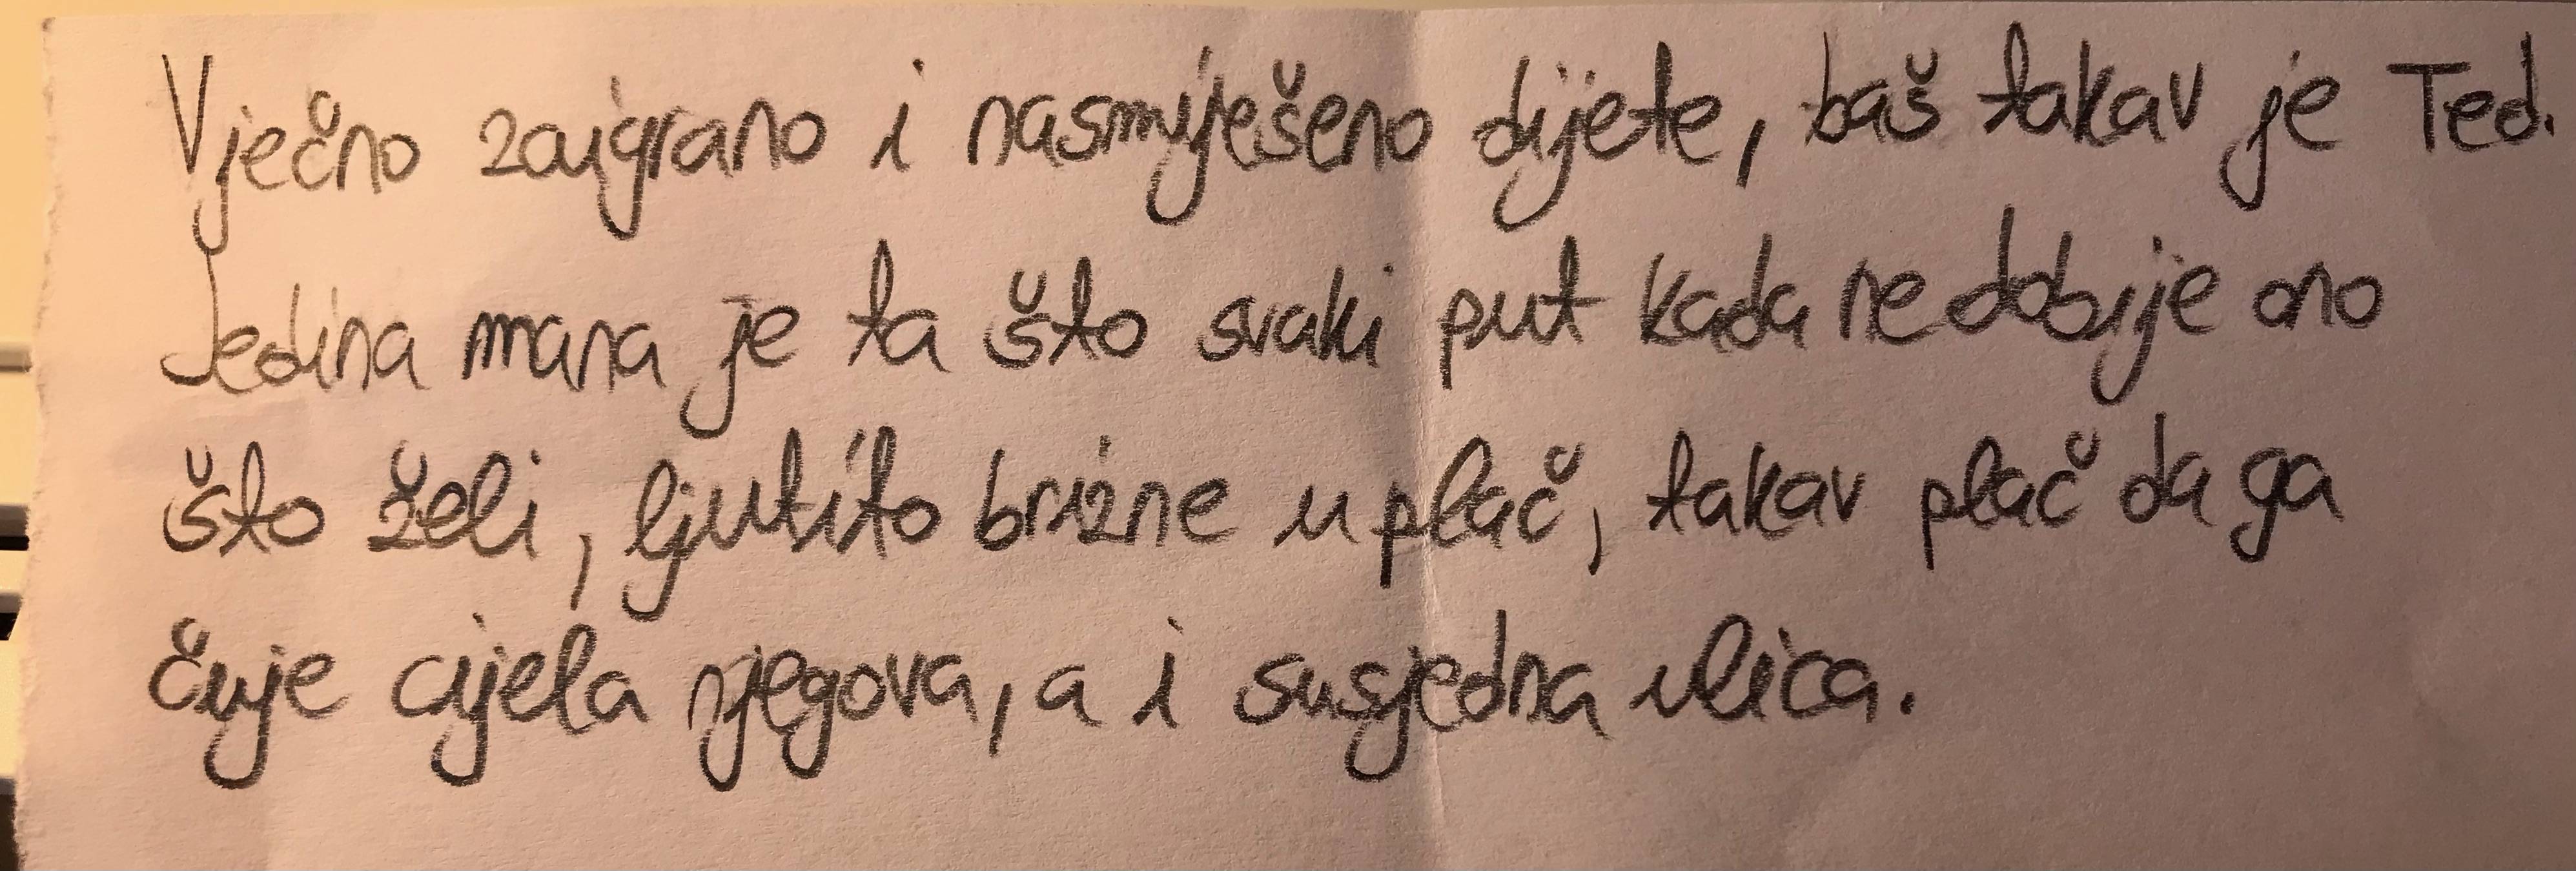 Vječno zaigrano i nasmiješeno dijete, baš takav je Ted.
Jedina mana je ta što svaki put kada ne dobije ono
što želi, ljutito brizne u plač, takav plač da ga
čuje cijela njegova, a i susjedna ulica.